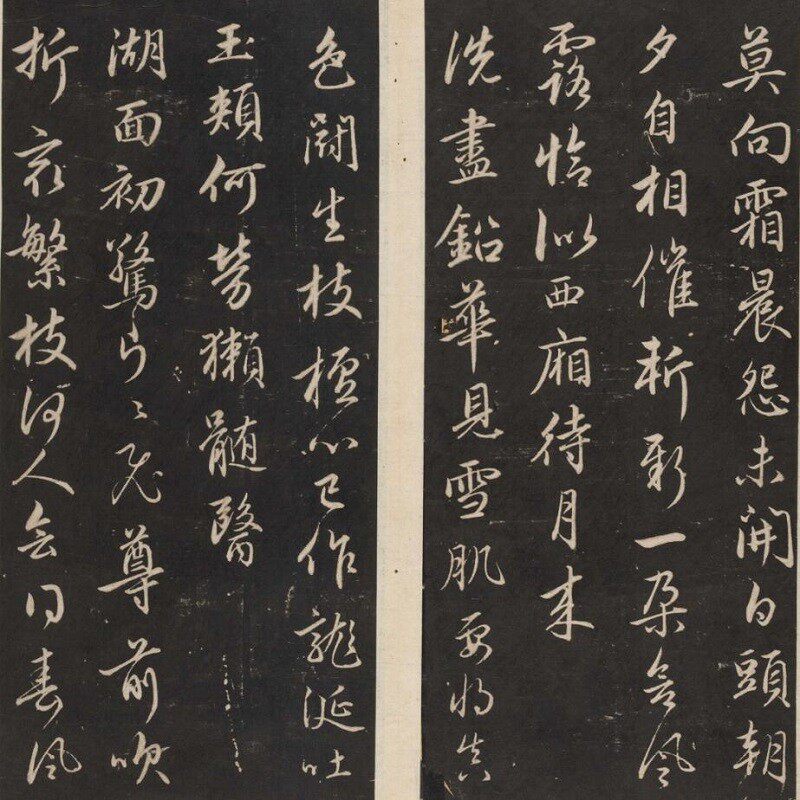 莫向霜晨怨未開白頭朝
夕自相催斬新一朵含風
露恰似西廂待月来
洗盡鉛華見雪肌要將真
色鬭生枝檀心已作龍涎吐
玉頰何勞獺髓醫
湖面初驚片〻飛尊前吹
折㝡繁枝何人會得春風